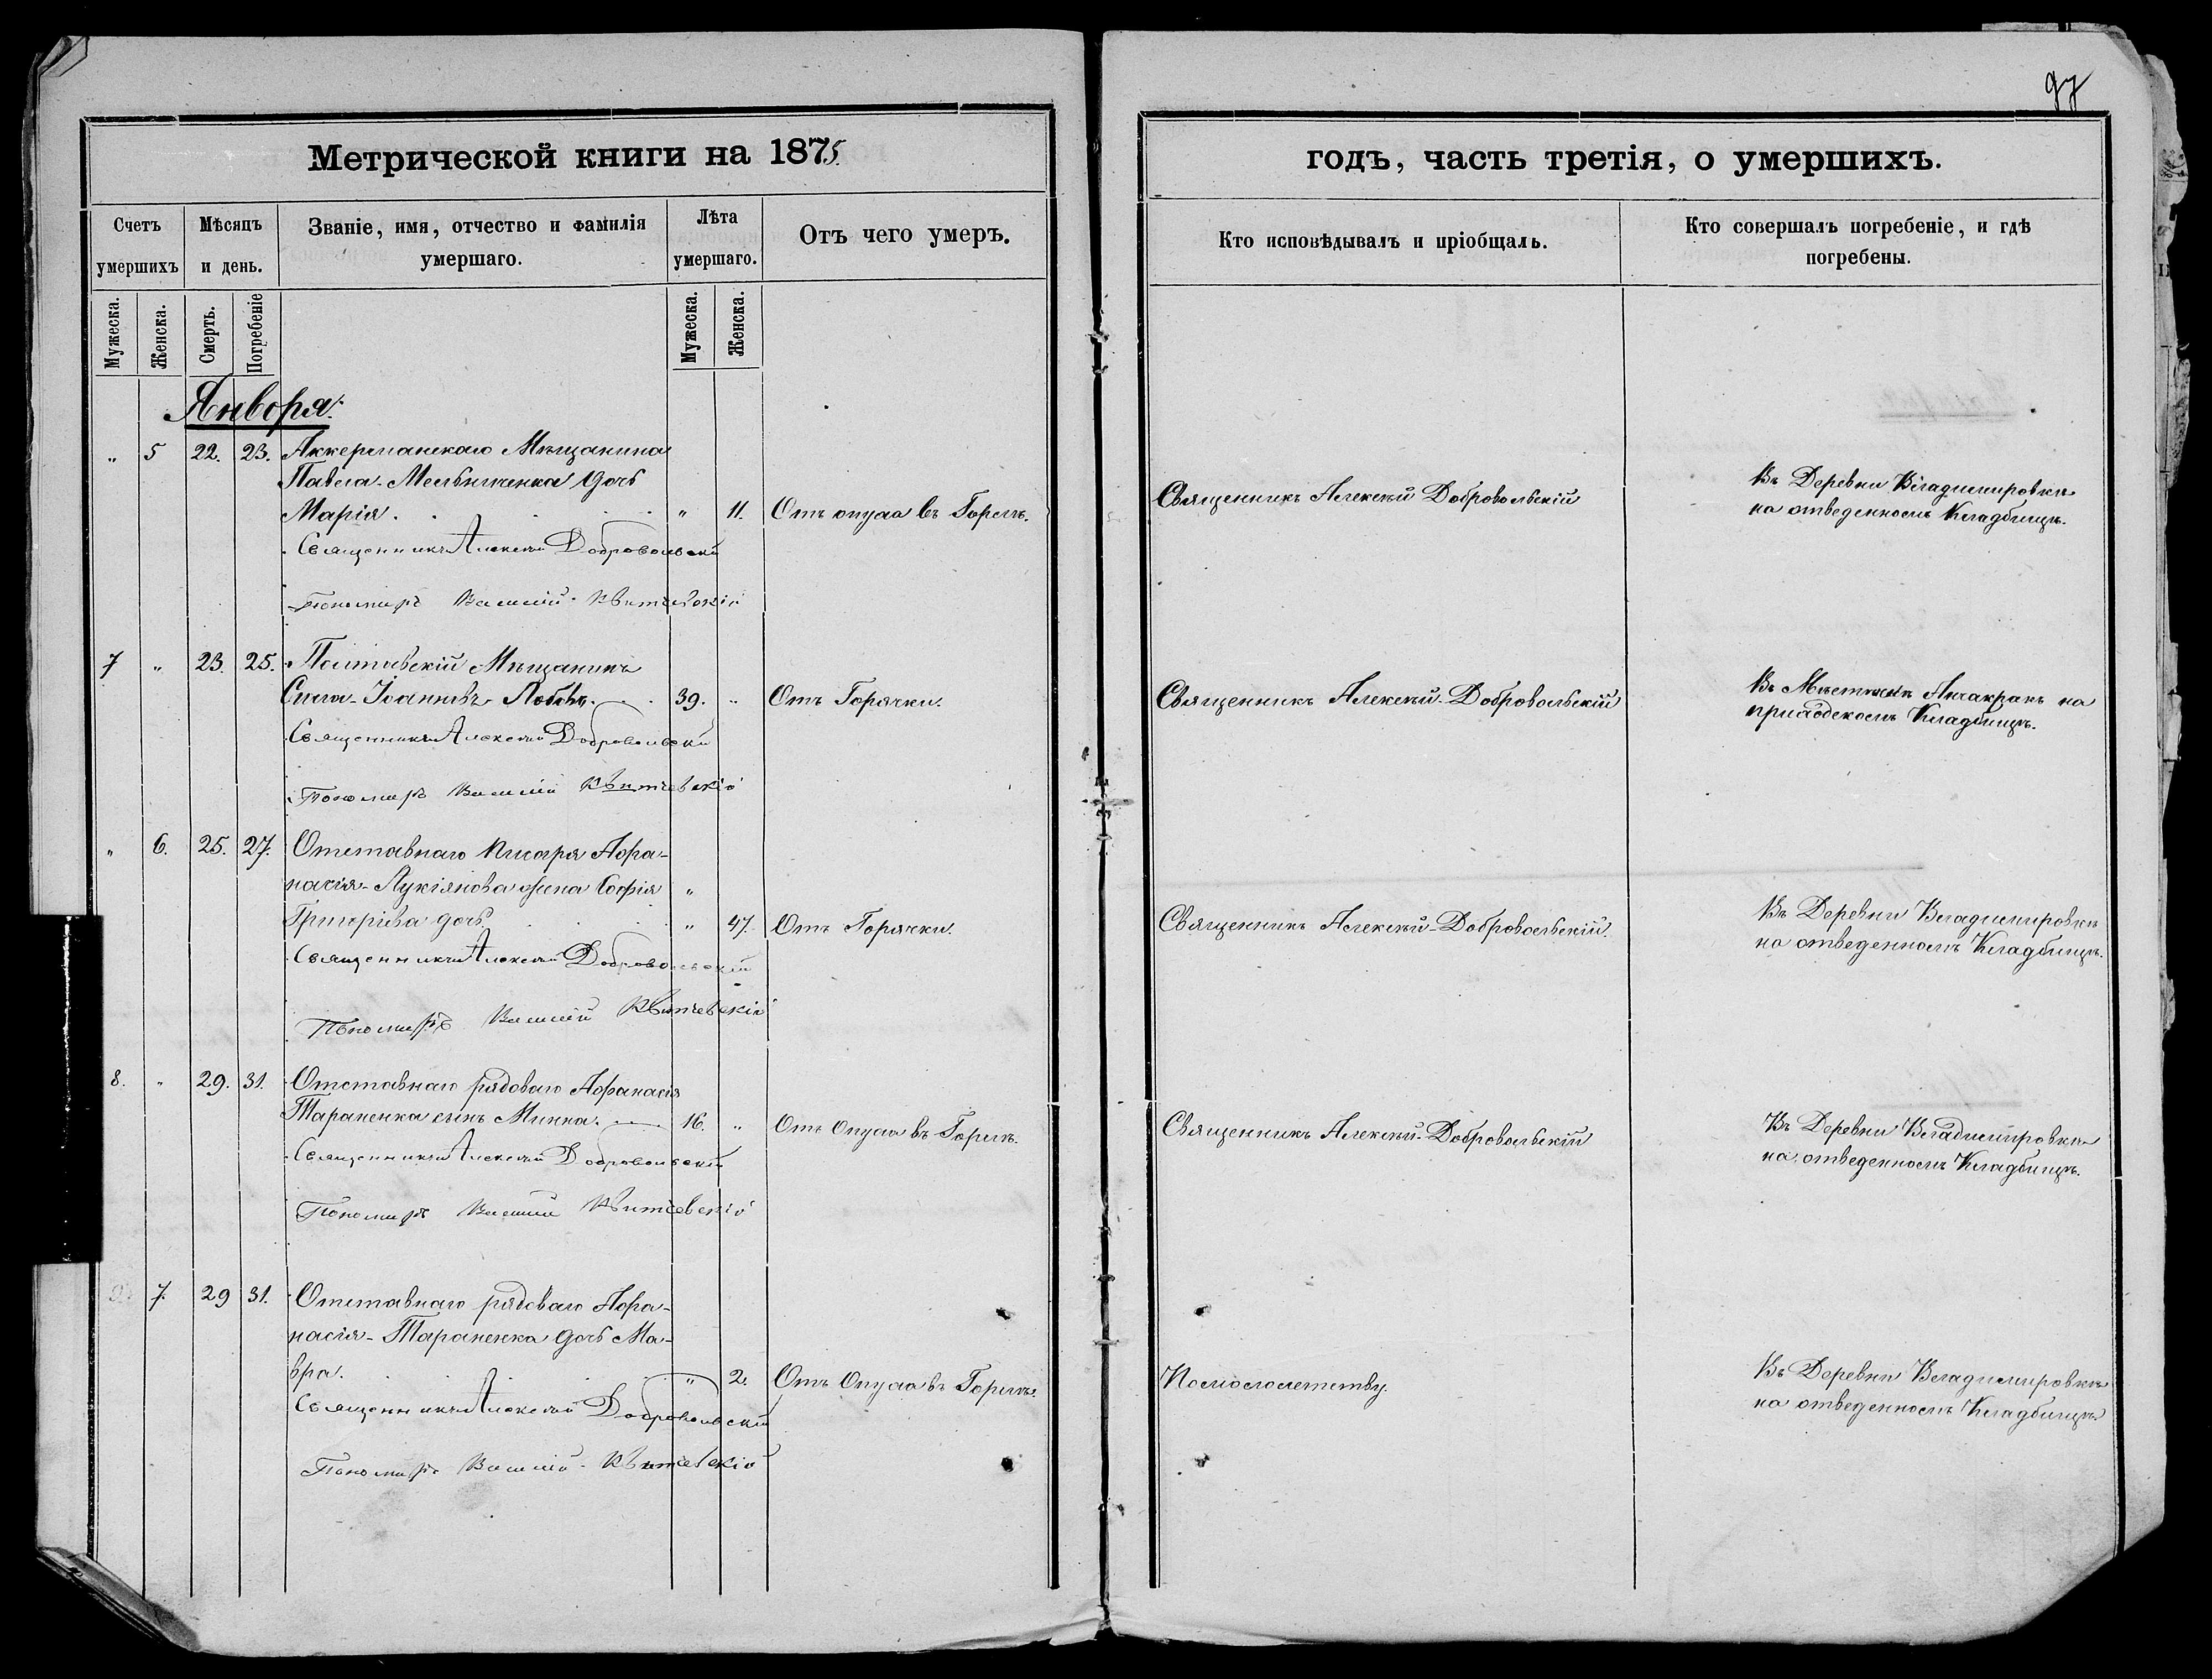 97
Метрической книги на 1875.
годъ, часть третія, о умершихъ.
Счетъ умершихъ
Мѣсяцъ и день.
Званіе, имя, отчество и фамилія умершаго.
Лѣта умершаго.
Отъ чего умеръ.
Кто исповѣдывалъ и пріобщалъ.
Кто совершалъ погребеніе, и гдѣ погребены.
Мужеска.
Женска.
Смерть.
Погребеніе
Мужеска.
Женска.
Января.
" 5 22. 23. Аккерманскаго Мѣщанина
Павела Мельниченка дочь
Марія. " 11. Отъ опуха въ Горлѣ.
Священникъ Алексѣй Добровольскій
Въ Деревни Владимировкѣ
на отведенномъ Кладбищѣ.
Священникъ Алексѣй Добровольскій
Пономарь Василій Квитчевскій
7 " 23. 25. Полтавскій Мѣщанинъ
Сила Іоанновъ 39. " Отъ Горячки.
Священникъ Алексѣй Добровольскій
Въ Мѣстечкѣ Анчакракъ на
приходскомъ Кладбищѣ.
Священникъ Алексѣй Добровольскій
Пономарь Василій Квитчевскій
" 6. 25. 27. Отставнаго Писаря Афа-
насія Лукіянова жена Софія "
Григоріева дочь. " 47. Отъ Горячки.
Священникъ Алексѣй Добровольскій.
Въ Деревни Владимировкѣ
на отведенномъ Кладбищѣ.
Священникъ Алексѣй Добровольскій
Пономарь Василій Квитчевскій
8. " 29. 31. Отставнаго рядоваго Афанасія
Тараненка сынъ Минна. 16. " Отъ Опуха въ Горлѣ.
Священникъ Алексѣй Добровольскій
Въ Деревни Владимировкѣ
на отведенномъ Кладбищѣ.
Священникъ Алексѣй Добровольскій
Пономарь Василій Квитчевскій
7. 29 31. Отставнаго рядоваго Афа-
насія Тараненка дочь Ма-
вра. " 2. Отъ Опуха въ Горлѣ.
По малолетству.
Въ Деревни Владимировкѣ
на отведенномъ Кладбищѣ
Священникъ Алексѣй Добровольскій
Пономарь Василій Квитчевскій